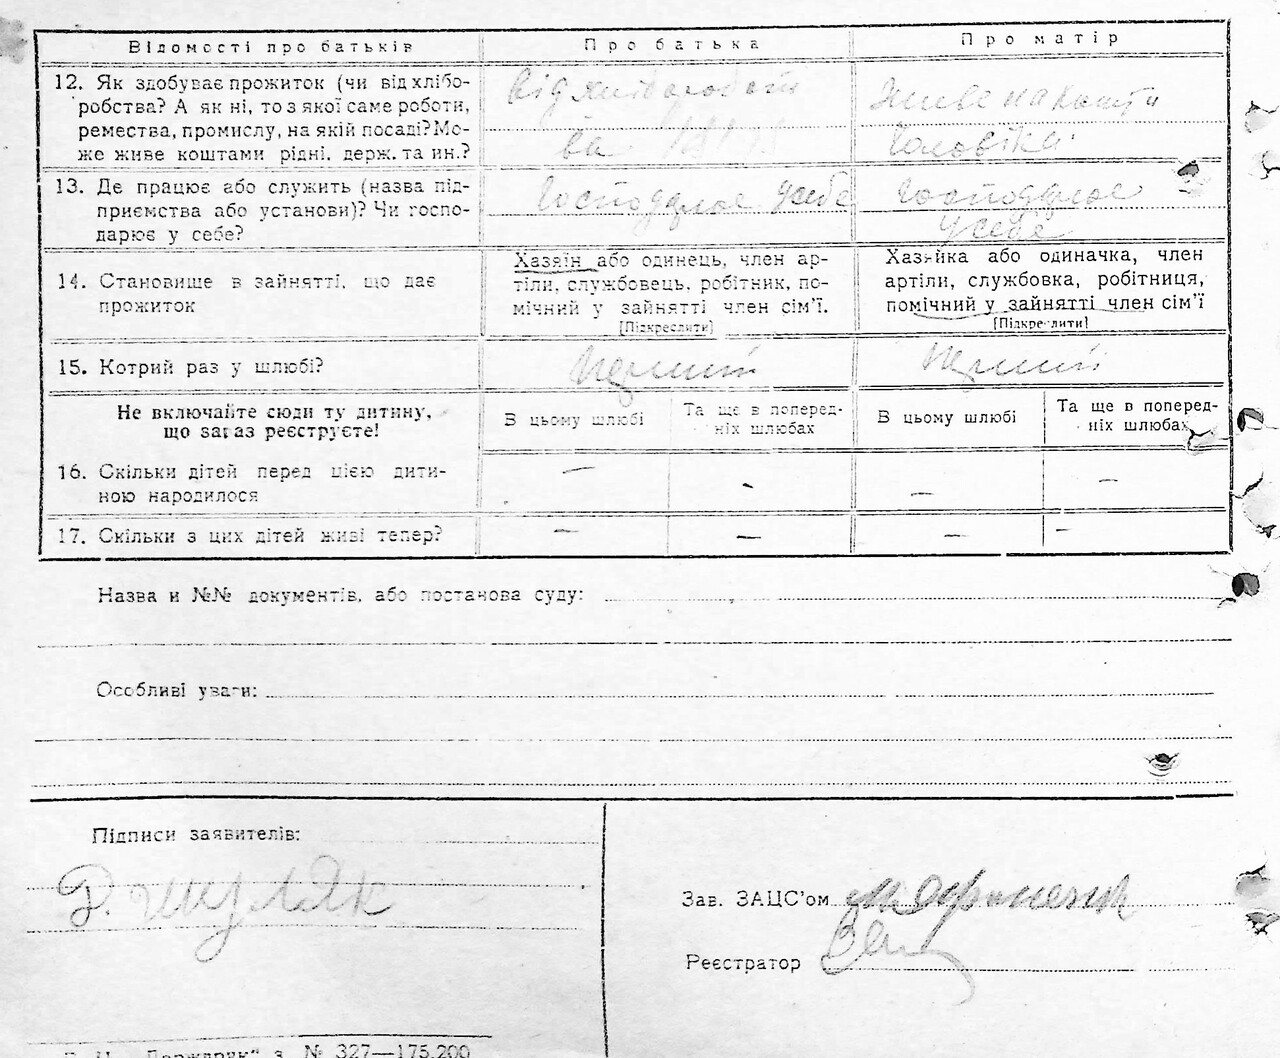 Відомості про батьків
Про батька
Про матір
12. Як здобуває прожиток (чи від хлібо-
робства? А як ні, то з якої саме роботи,
ремества, промислу, на якій посаді? Мо-
же живе коштами рідні, держ. та ин.?
від хліборобст
ва
живе на кошти
чоловіка
13. Де працює або служить (назва під-
приємства або установи)? Чи госпо-
дарює у себе?
Господарює у себе
Господарює
у себе
14. Становище в зайнятті, що дає
прожиток
Хазяїн або одинець, член ар-
тіли, службовець, робітник, по-
мічний у зайнятті член сім'ї.
[Підкреслити]
Хазяйка або одиначка, член
артіли, службовка, робітниця,
помічний у зайнятті член сім'ї
[Підкреслити]
15. Котрий раз у шлюбі?
Перший
Перший
Не включайте сюди ту дитину,
що зараз реєструєте!
В цьому шлюбі
Та ще в поперед-
ніх шлюбах
В цьому шлюбі
Та ще в поперед-
ніх шлюбах
16. Скільки дітей перед цією дити-
ною народилося
—
—
—
—
17. Скільки з цих дітей живі тепер?
—
—
—
—
Назва и №№ документів, або постанова суду:
Особливі уваги:
Підписи заявителів:
Д. Шуляк
Зав. ЗАЦС'ом
Реєстратор
"Держдрук" з. № 327—175.200